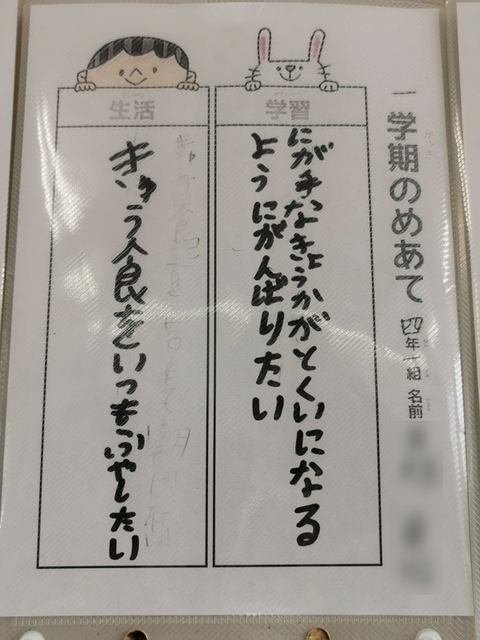 一学期のめあて
四年一組 名前
学習
にが手なきょうかがとくいになる
ようにがん張りたい
生活
きゅう食をいつもふやしたい